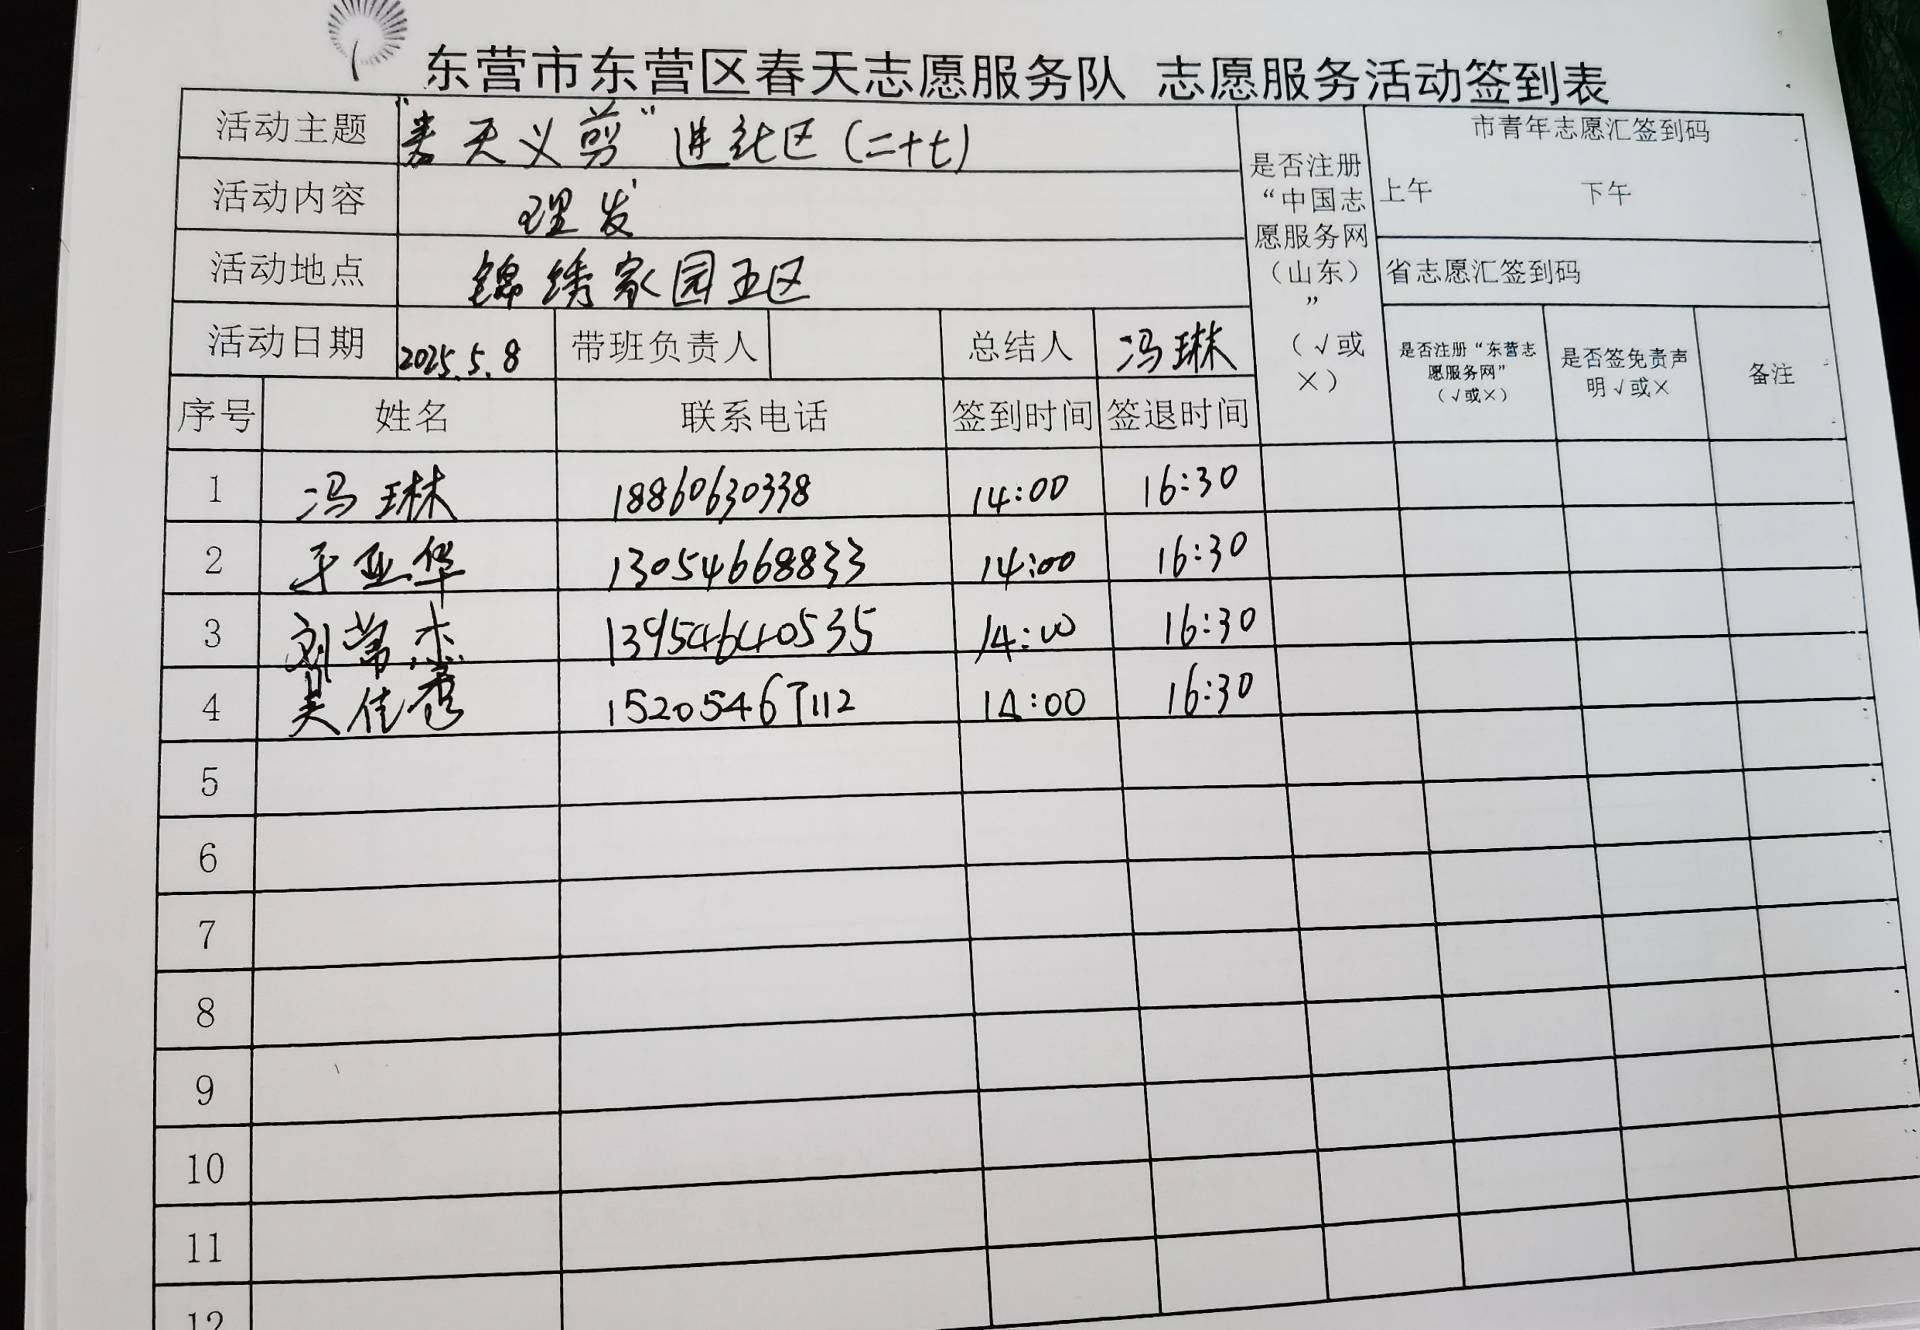 东营市东营区春天志愿服务队 志愿服务活动签到表
活动主题 “春天义剪”进社区(二十七)
活动内容 理发
活动地点 锦绣家园五区
是否注册“中国志愿服务网(山东)”(√或×)
市青年志愿汇签到码
上午 下午
省志愿汇签到码
活动日期 2025.5.8 带班负责人 总结人 冯琳
是否注册“东营志愿服务网”(√或×) 是否签免责声明√或× 备注
序号 姓名 联系电话 签到时间 签退时间
1 冯琳 18860630338 14:00 16:30
2 于亚华 13054668833 14:00 16:30
3 刘常杰 13954640535 14:00 16:30
4 吴佳 15205467112 14:00 16:30
5
6
7
8
9
10
11
12